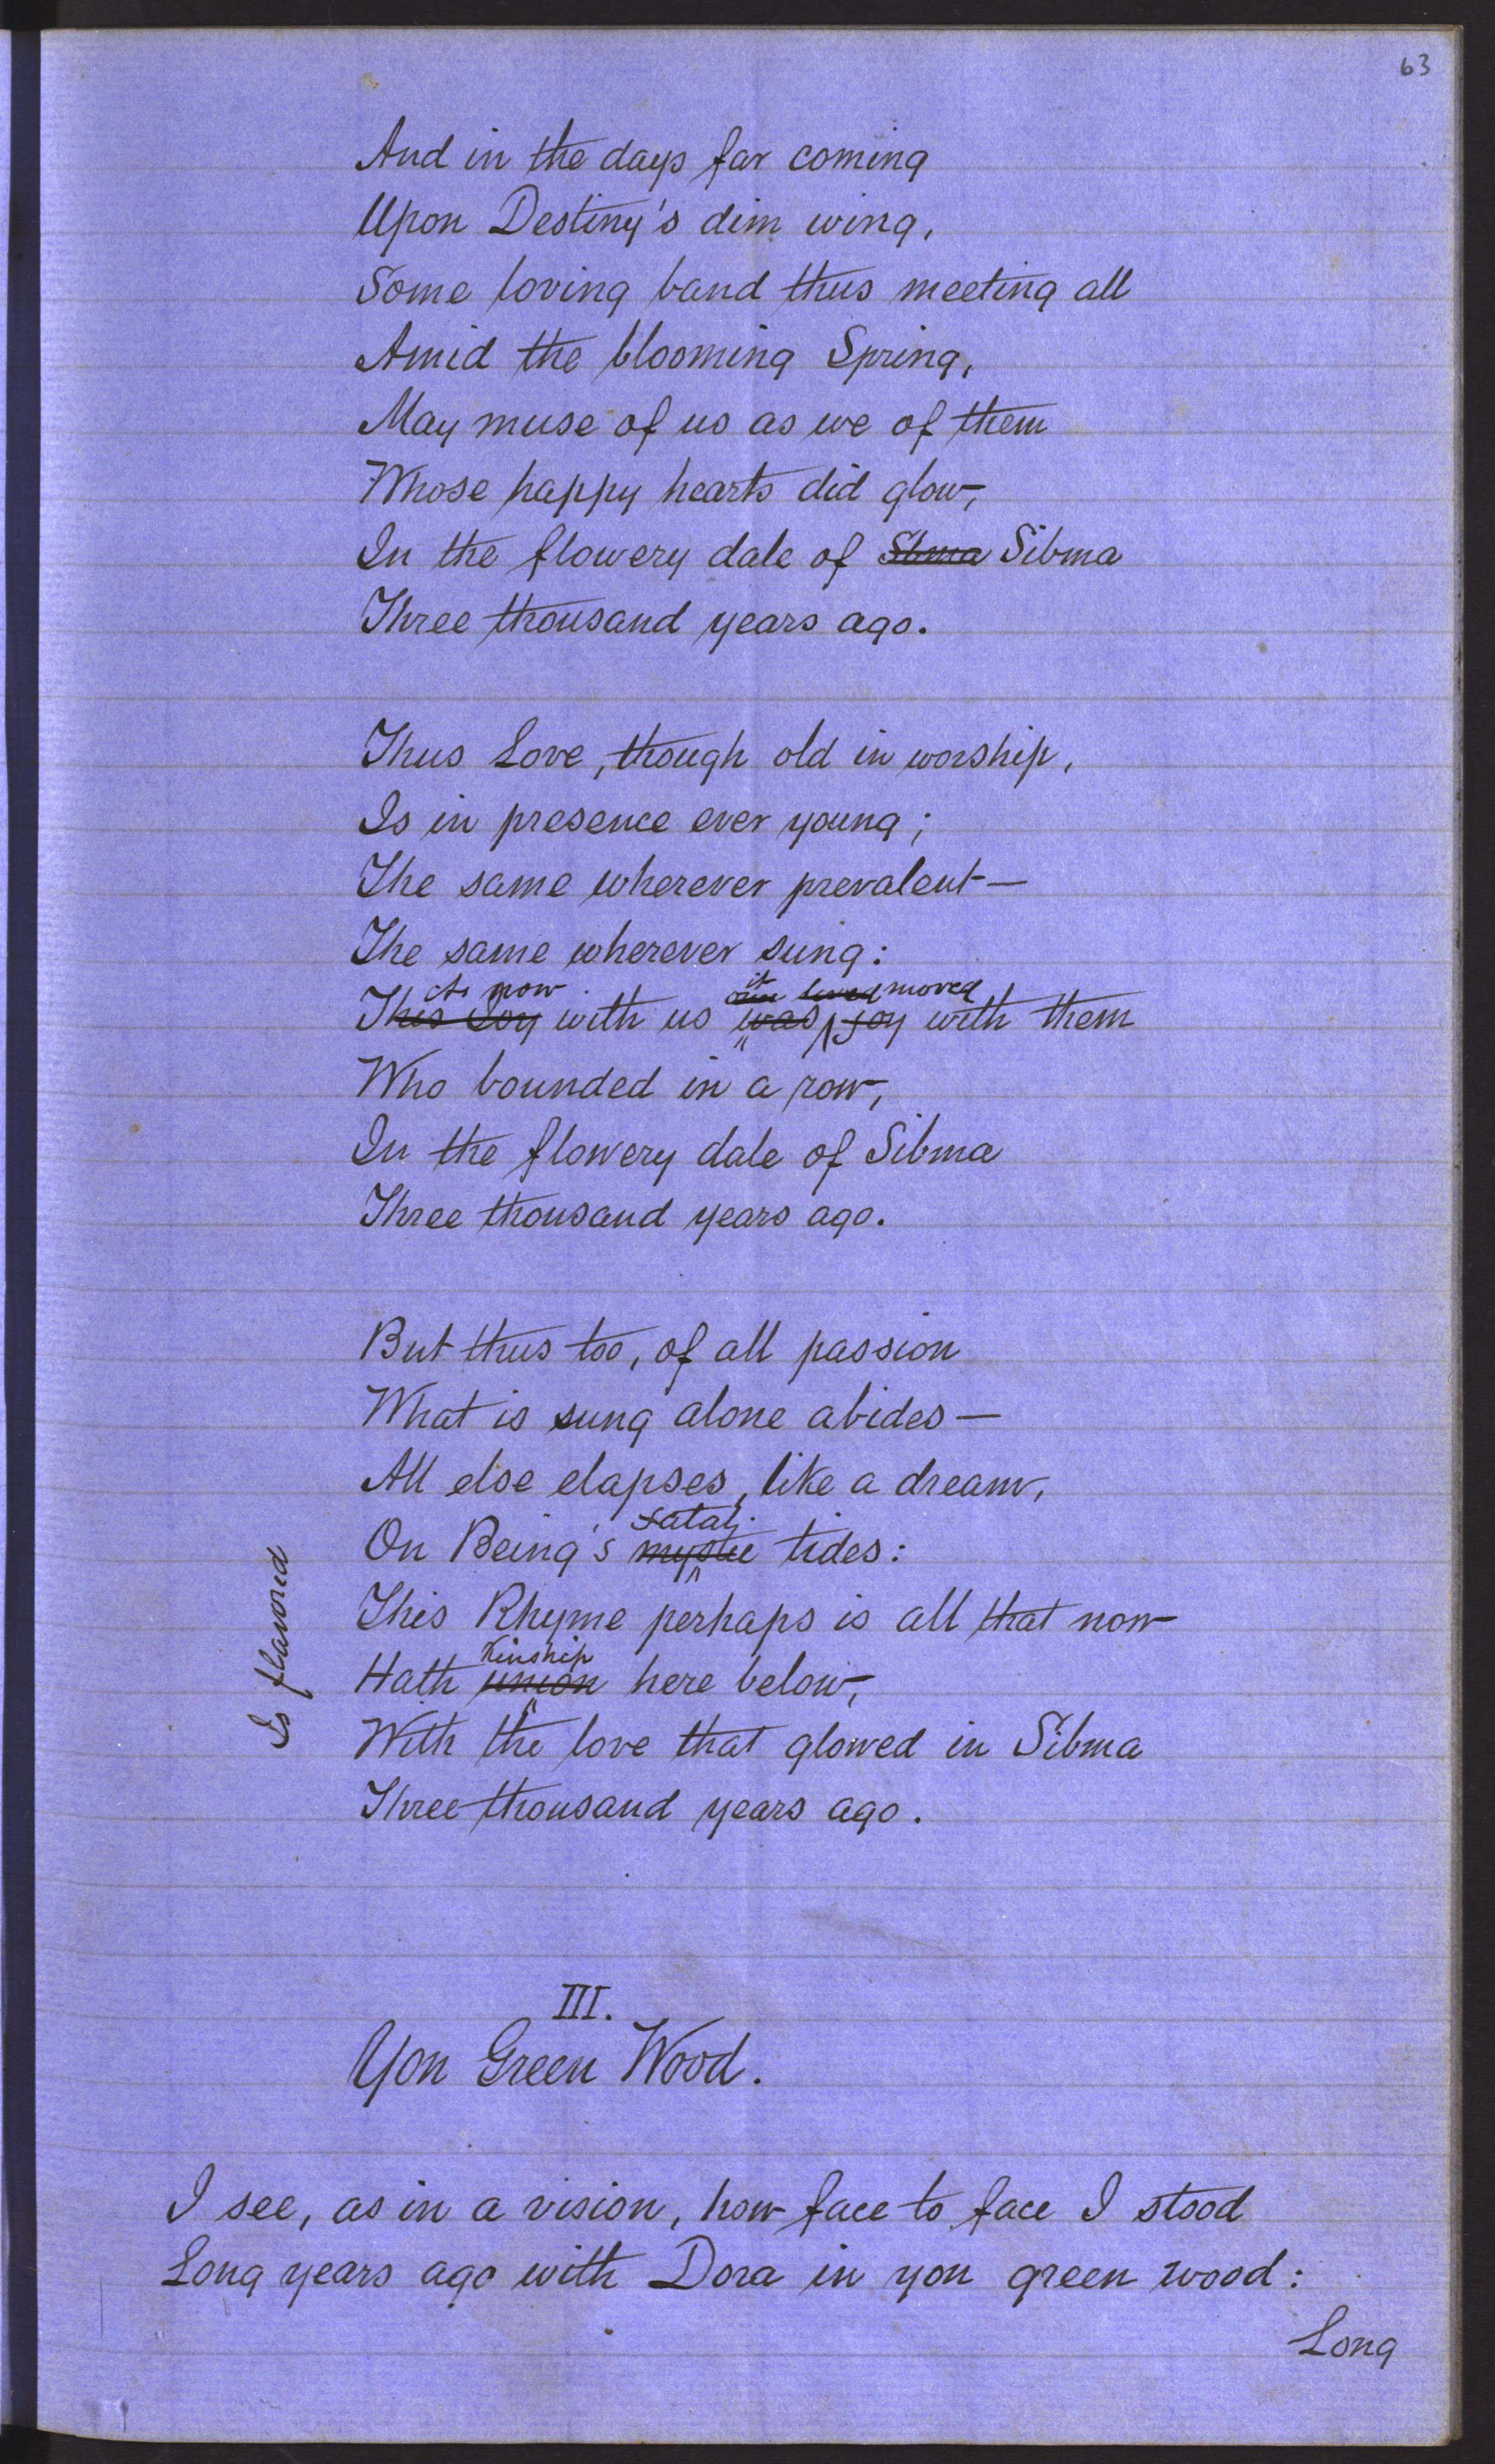 63
And in the days far coming
Upon Destiny's dim wing,
Some loving band thus meeting all
Amid the blooming Spring,
May muse of us as we of them
Whose happy hearts did glow,
In the flowery dale of Sbma Sibma
Three thousand years ago.
Thus Love, though old in worship,
Is in presence ever young;
The same wherever prevalent—
The same wherever sung:
As now it lived moved
This Joy with us was joy with them
Who bounded in a row,
In the flowery dale of Sibma
Three thousand years ago.
But thus too, of all passion
What is sung alone abides—
All else elapses, like a dream,
fatal
On Being's mystic tides:
This Rhyme perhaps is all that now
Kinship
Hath union here below,
Is flavored
With the love that glowed in Sibma
Three thousand years ago.
III.
Yon Green Wood.
I see, as in a vision, how face to face I stood
Long years ago with Dora in yon green wood:
Long